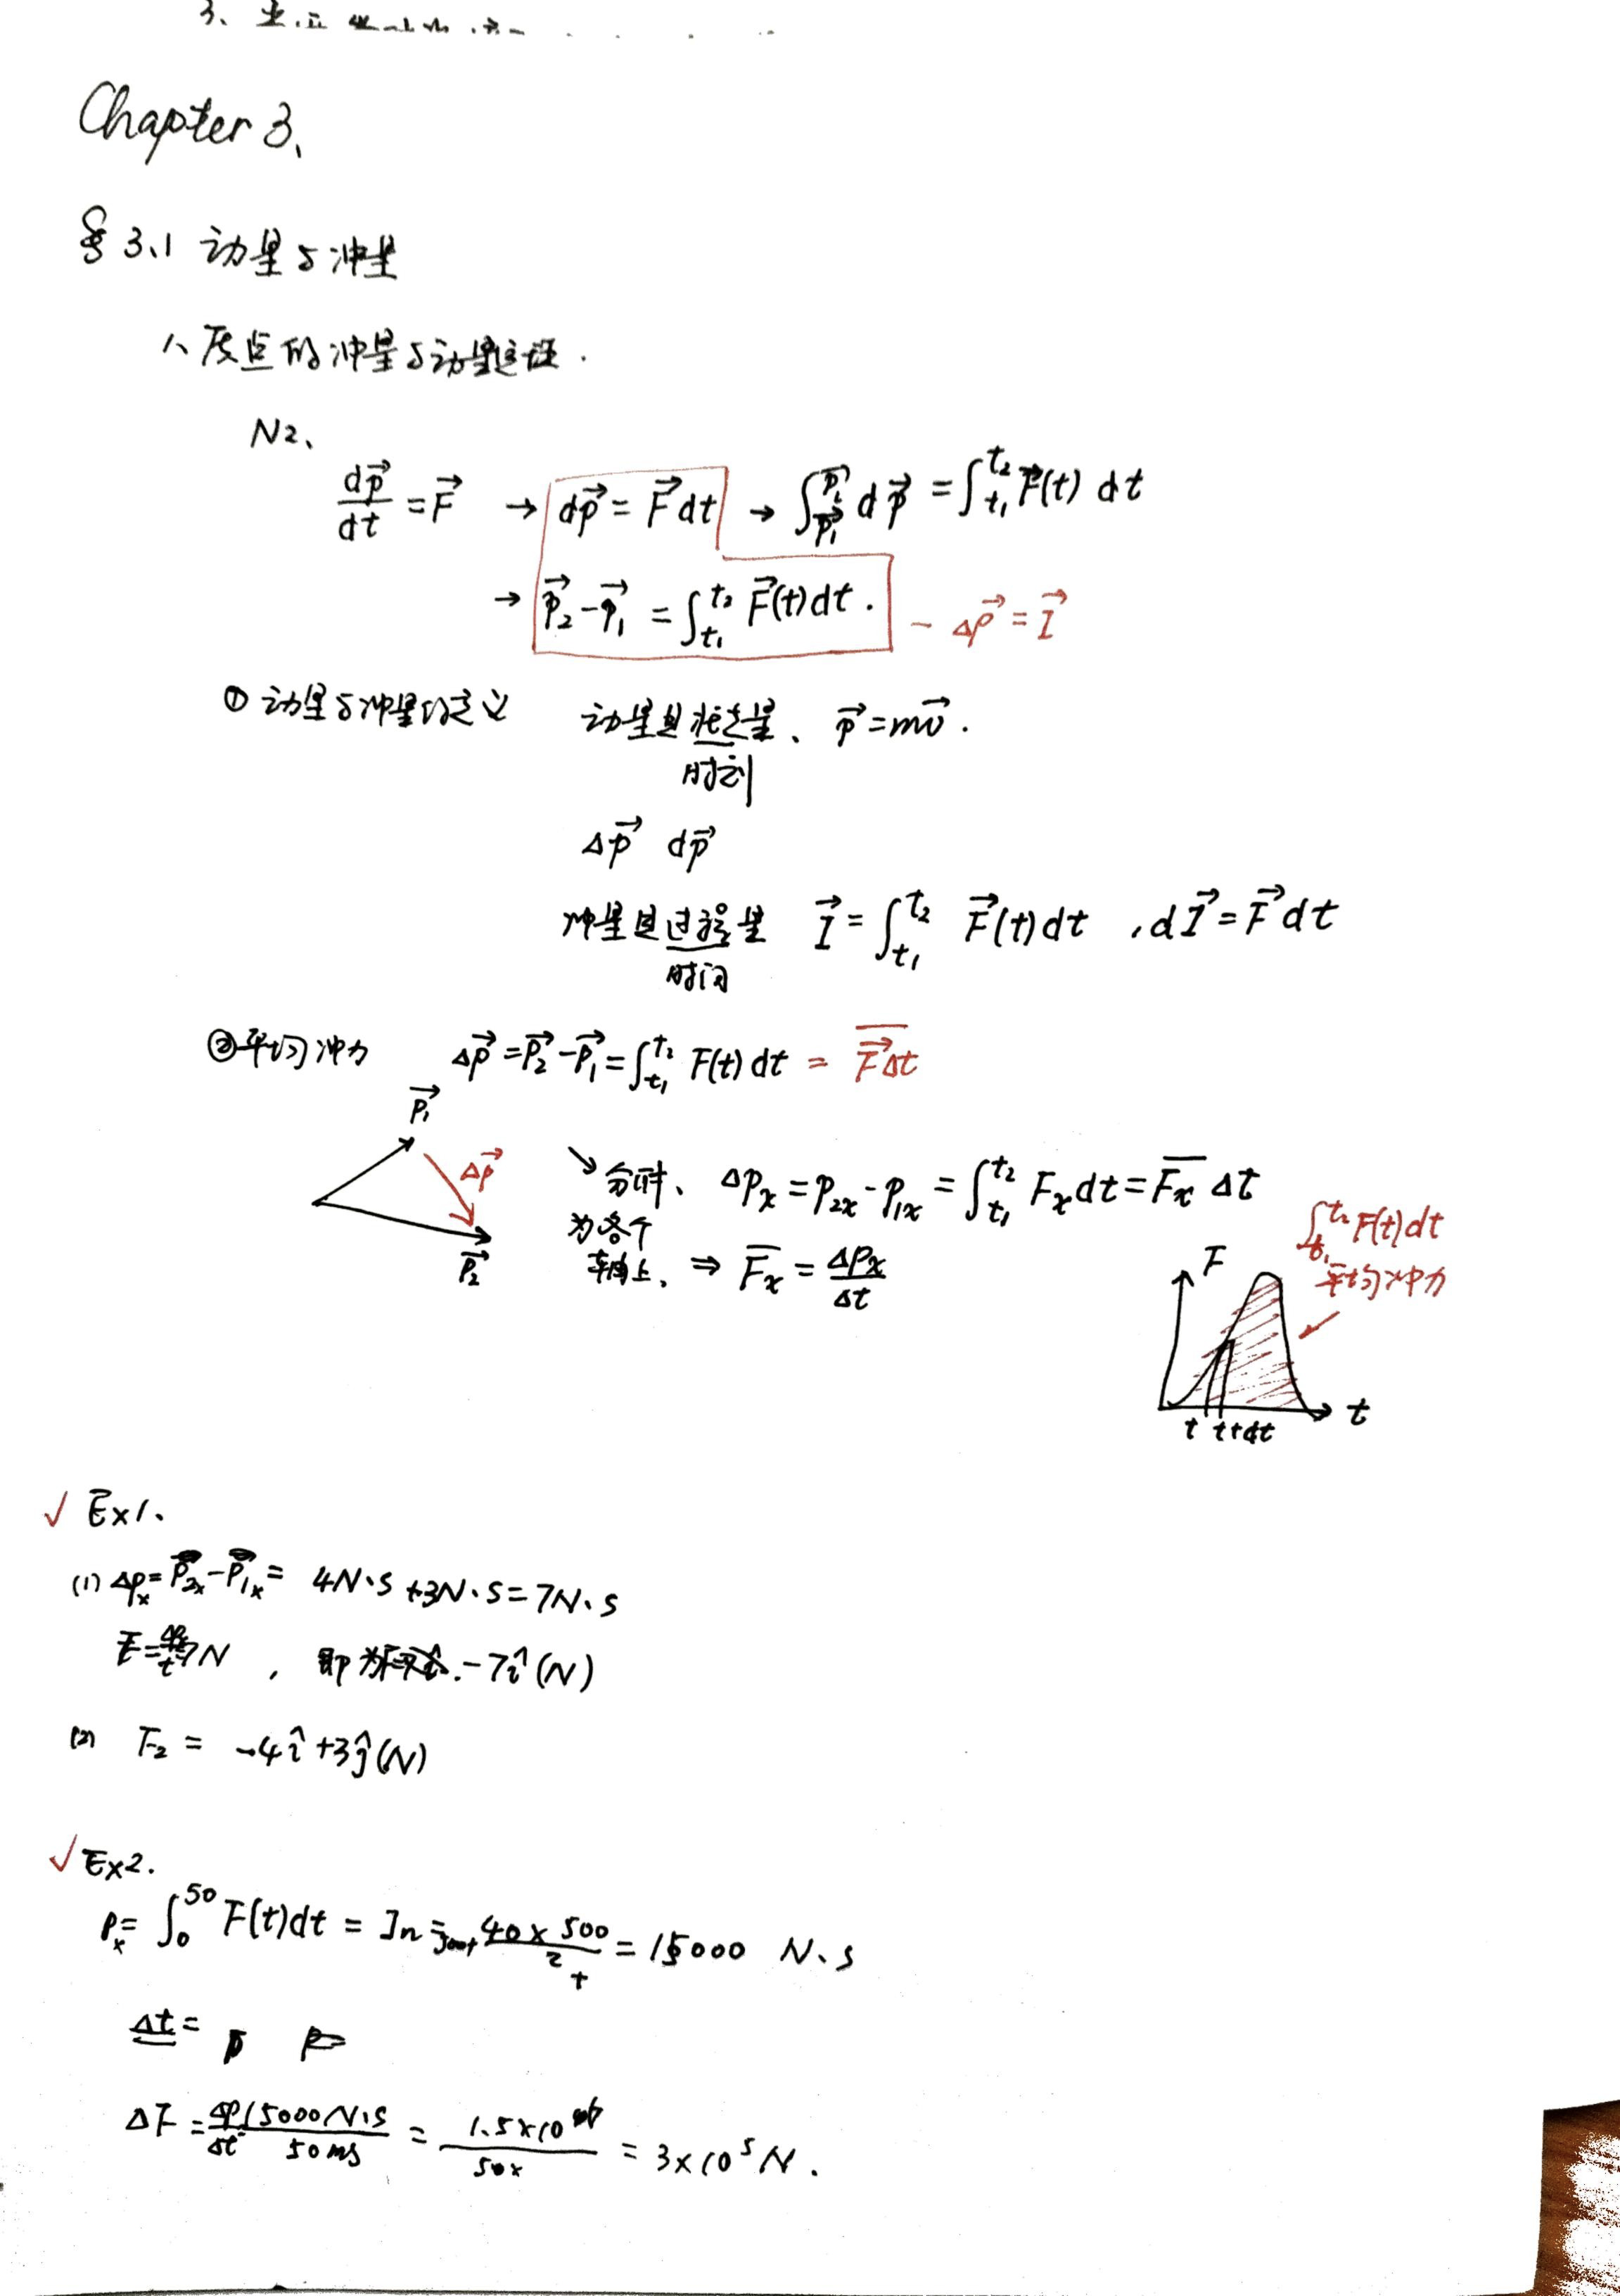 Chapter 3、
§ 3、1 动量与冲量
1、质点的冲量与动量定理.
N2、
dp⃗/dt = F⃗ → dp⃗ = F⃗dt → ∫_{p⃗₁}^{p⃗₂} dp⃗ = ∫_{t₁}^{t₂} F⃗(t) dt
→ p⃗₂ - p⃗₁ = ∫_{t₁}^{t₂} F⃗(t)dt. - Δp⃗ = I⃗
① 动量与冲量的定义 动量是状态量、 p⃗ = mv⃗.
时刻
Δp⃗ dp⃗
冲量是过程量 I⃗ = ∫_{t₁}^{t₂} F⃗(t)dt , dI⃗ = F⃗dt
时间
②平均冲力 Δp⃗ = p⃗₂ - p⃗₁ = ∫_{t₁}^{t₂} F(t)dt = F⃗Δt
p⃗₁
Δp⃗
p⃗₂
↘ 分解、 Δpₓ = p₂ₓ - p₁ₓ = ∫_{t₁}^{t₂} Fₓdt = F̅ₓ Δt
为各个
轴上、 ⇒ F̅ₓ = Δpₓ/Δt
∫_{t₁}^{t₂} F(t)dt
平均冲力
F
t t+dt
t
✓ Ex1、
(1) Δpₓ = p₂ₓ - p₁ₓ = 4N·s + 3N·s = 7N·s
N , 即为 -7î (N)
(2) F₂ = -4î + 3ĵ (N)
✓ Ex2.
pₓ = ∫₀⁵⁰ F(t)dt = 40 × 500/2 = 15000 N·s
Δt =
ΔF = Δp/Δt 15000N·s/50ms = 1.5×10/50× = 3×10⁵N.